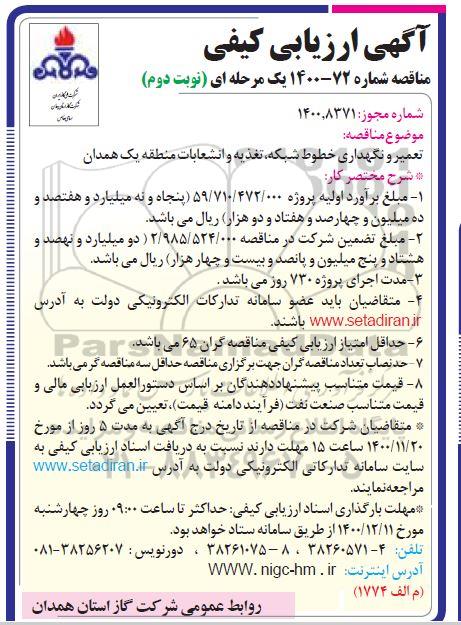 آگهی ارزیابی کیفی
مناقصه شماره ۷۲-۱۴۰۰ یک مرحله ای (نوبت دوم)
شماره مجوز: ۱۴۰۰,۸۳۷۱
موضوع مناقصه:
تعمیر و نگهداری خطوط شبکه، تغذیه و انشعابات منطقه یک همدان
* شرح مختصر کار:
۱- مبلغ برآورد اولیه پروژه ۵۹/۷۱۰/۴۷۲/۰۰۰ (پنجاه و نه میلیارد و هفتصد و
ده میلیون و چهارصد و هفتاد و دو هزار) ریال می باشد.
۲- مبلغ تضمین شرکت در مناقصه ۲/۹۸۵/۵۲۴/۰۰۰ ( دو میلیارد و نهصد و
هشتاد و پنج میلیون و پانصد و بیست و چهار هزار) ریال می باشد.
۳-مدت اجرای پروژه ۷۳۰ روز می باشد .
۴- متقاضیان باید عضو سامانه تدارکات الکترونیکی دولت به آدرس
www.setadiran.ir باشند.
۶- حداقل امتیاز ارزیابی کیفی مناقصه گران ۶۵ می باشد.
۷- حدنصاب تعداد مناقصه گران جهت برگزاری مناقصه حداقل سه مناقصه گر می باشد.
۸- قیمت متناسب پیشنهاددهندگان بر اساس دستورالعمل ارزیابی مالی و
قیمت متناسب صنعت نفت (فرآیند دامنه قیمت)، تعیین می گردد.
* متقاضیان شرکت در مناقصه از تاریخ درج آگهی به مدت ۵ روز از مورخ
۱۴۰۰/۱۱/۲۰ ساعت ۱۵ مهلت دارند نسبت به دریافت اسناد ارزیابی کیفی به
سایت سامانه تدارکاتی الکترونیکی دولت به آدرس www.setadiran.ir
مراجعه نمایند.
*مهلت بارگذاری اسناد ارزیابی کیفی: حداکثر تا ساعت ۰۹:۰۰ روز چهارشنبه
مورخ ۱۴۰۰/۱۲/۱۱ از طریق سامانه ستاد خواهد بود.
تلفن: ۴-۳۸۲۶۰۵۷۱ ، ۸-۳۸۲۶۱۰۷۵ ، دورنویس: ۳۸۲۵۶۲۰۷-۰۸۱
آدرس اینترنت: www. nigc-hm . ir
(م الف ۱۷۷۴)
روابط عمومی شرکت گاز استان همدان